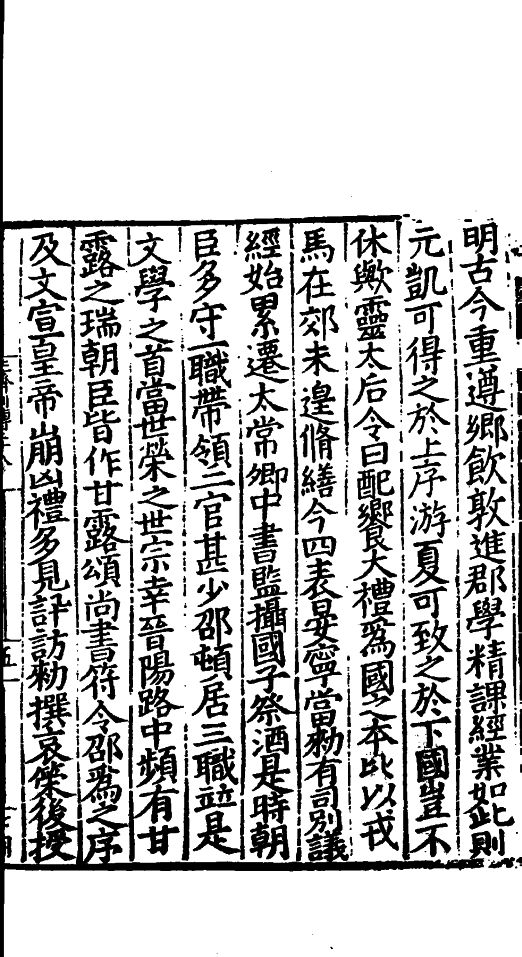 明古今重遵鄉飲敦進郡學精課經業如此則
元凱可得之於上序游夏可致之於下國豈不
休歟靈太后令曰配饗大禮爲國之本比以戎
馬在郊未遑脩繕今四表晏寧當勑有司别議
經始累遷太常卿中書監攝國子祭酒是時朝
臣多守一職帶領二官甚少邵頓居三職並是
文學之首當世榮之世宗幸晉陽路中頻有甘
露之瑞朝臣皆作甘露頌尚書符令邵爲之序
及文宣皇帝崩凶禮多見訝訪勑撰哀䇿後授